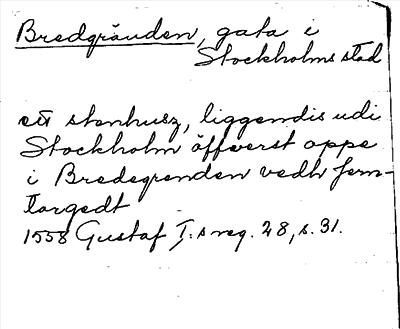 Bredgränden, gata i
Stockholms stad
ett stenhusz, liggendis udi
Stockholm öffverst oppe
i Bredegrenden vedh jern-
torgedt
1558 Gustaf I:s reg. 28, s. 31.